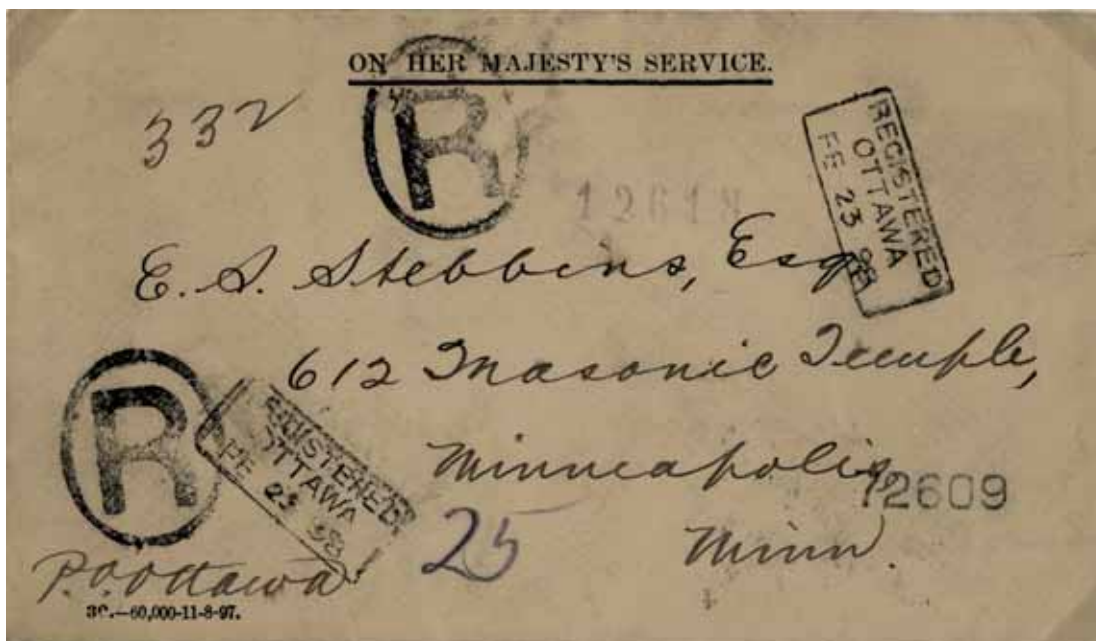 ON HER MAJESTY'S SERVICE.
332
R
REGISTERED
OTTAWA
FE 23 98
12618
E. S. Stebbins, Esq
612 Masonic Temple,
Minneapolis,
12609
Minn.
R
REGISTERED
OTTAWA
FE 23 98
25
P.O. Ottawa
3C.—60,000-11-8-97.